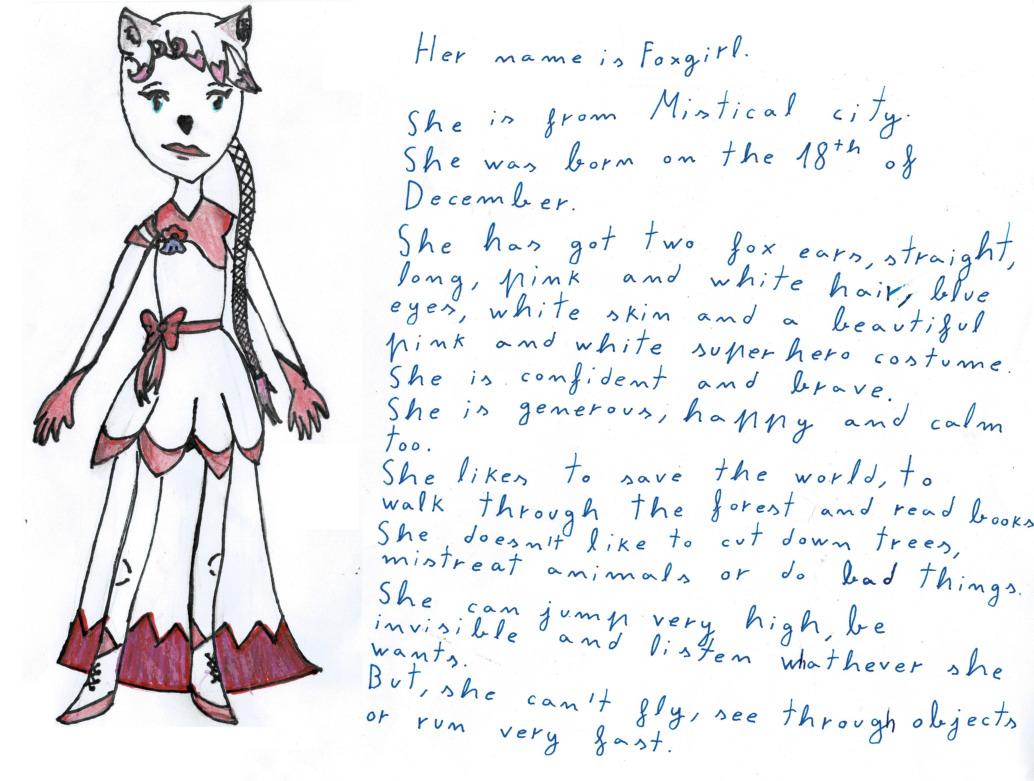 Her name is Foxgirl.
She is from Mistical city.
She was born on the 18th of
December.
She has got two fox ears, straight,
long, pink and white hair, blue
eyes, white skin and a beautiful
pink and white super hero costume.
She is confident and brave.
She is generous, happy and calm
too.
She likes to save the world, to
walk through the forest and read books
She doesn't like to cut down trees,
mistreat animals or do bad things.
She can jump very high, be
invisible and listen whathever she
wants.
But, she can't fly, see through objects
or run very fast.